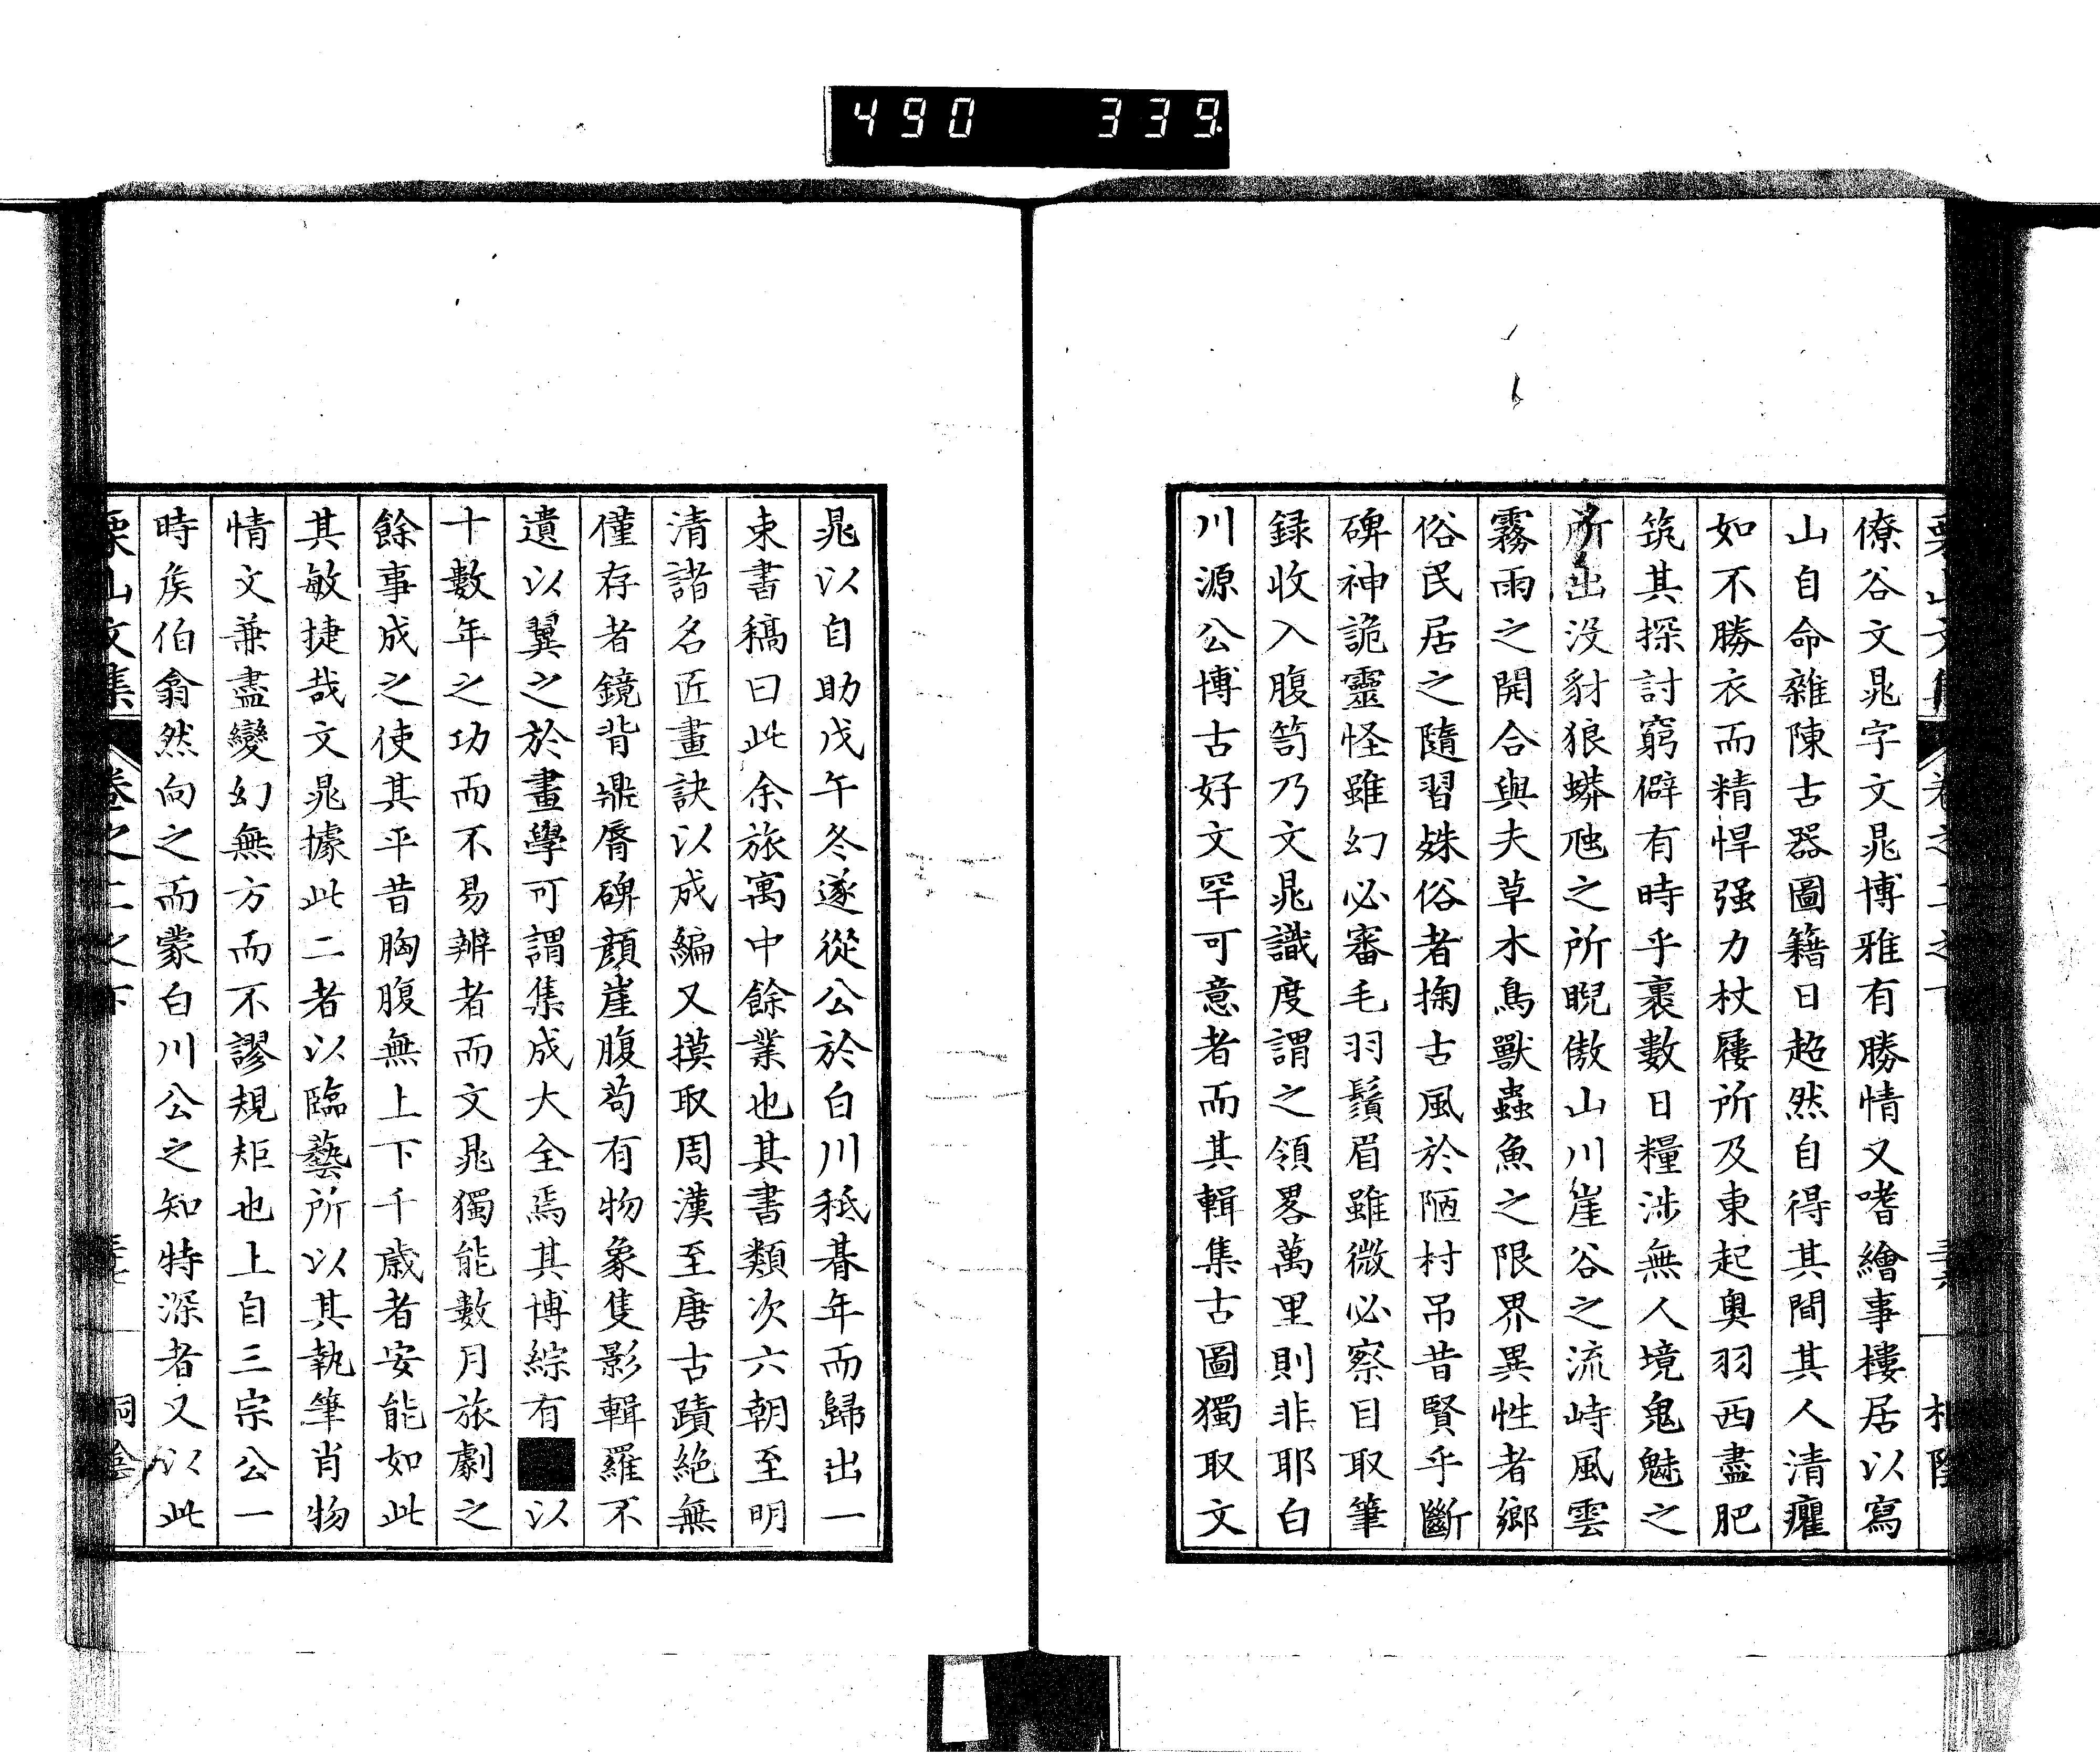 490 339
僚谷文晁字文晁博雅有勝情又嗜繪事樓居以寫
山自命雜陳古器圖籍日超然自得其間其人清癯
如不勝衣而精悍强力杖屨所及東起奥羽西盡肥
筑其探討窮僻有時乎裹數日糧涉無人境鬼魅之
所出沒豺狼蟒虺之所睨傲山川崖谷之流峙風雲
霧雨之開合與夫草木鳥獸蟲魚之限界異性者鄉
俗民居之隨習姝俗者掬古風於陋村吊昔賢乎斷
碑神詭靈怪雖幻必審毛羽鬚眉雖微必察目取筆
録收入腹笥乃文晁識度謂之領畧萬里則非耶白
川源公博古好文罕可意者而其輯集古圖獨取文
晁以自助戊午冬遂從公於白川秪朞年而歸出一
束書稿曰此余旅寓中餘業也其書類次六朝至明
清諸名匠畫訣以成編又摸取周漢至唐古蹟絶無
僅存者鏡背鼎脣碑顔崖腹苟有物象隻影輯羅不
遺以翼之於畫學可謂集成大全焉其博綜有以
十數年之功而不易辨者而文晁獨能數月旅劇之
餘事成之使其平昔胸腹無上下千歲者安能如此
其敏捷哉文晁據此二者以臨藝所以其執筆肖物
情文兼盡變幻無方而不謬規矩也上自三宗公一
時矦伯翕然向之而蒙白川公之知特深者又以此
栗山文集 卷之二之下